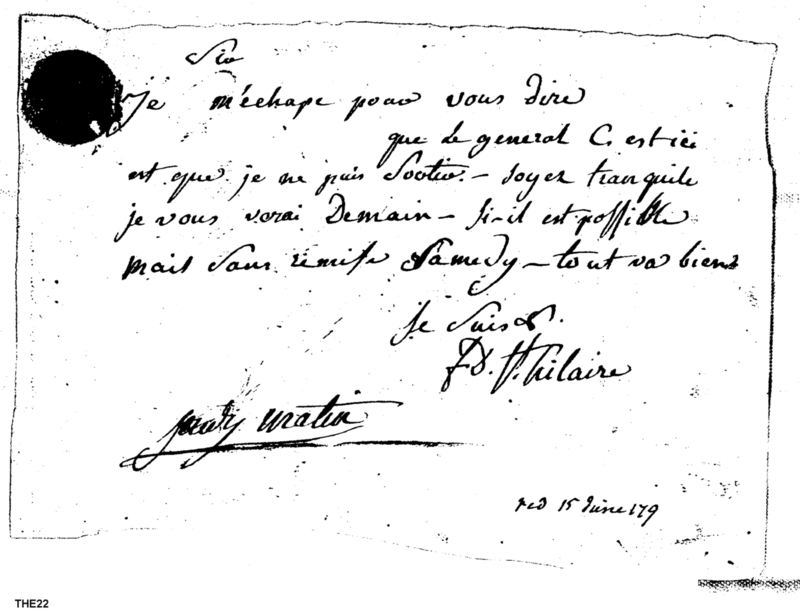 Sir
Je m'échape pour vous dire
que le general C. est ici
est que je ne puis Sortir. – Soyez tranquile
je vous verai Demain – Si-il est possible
mais Sans remise Samedy – tout va bien
Je Suis &.
F. D. St. hilaire
Jeudy matin
red 15 June 179
THE22